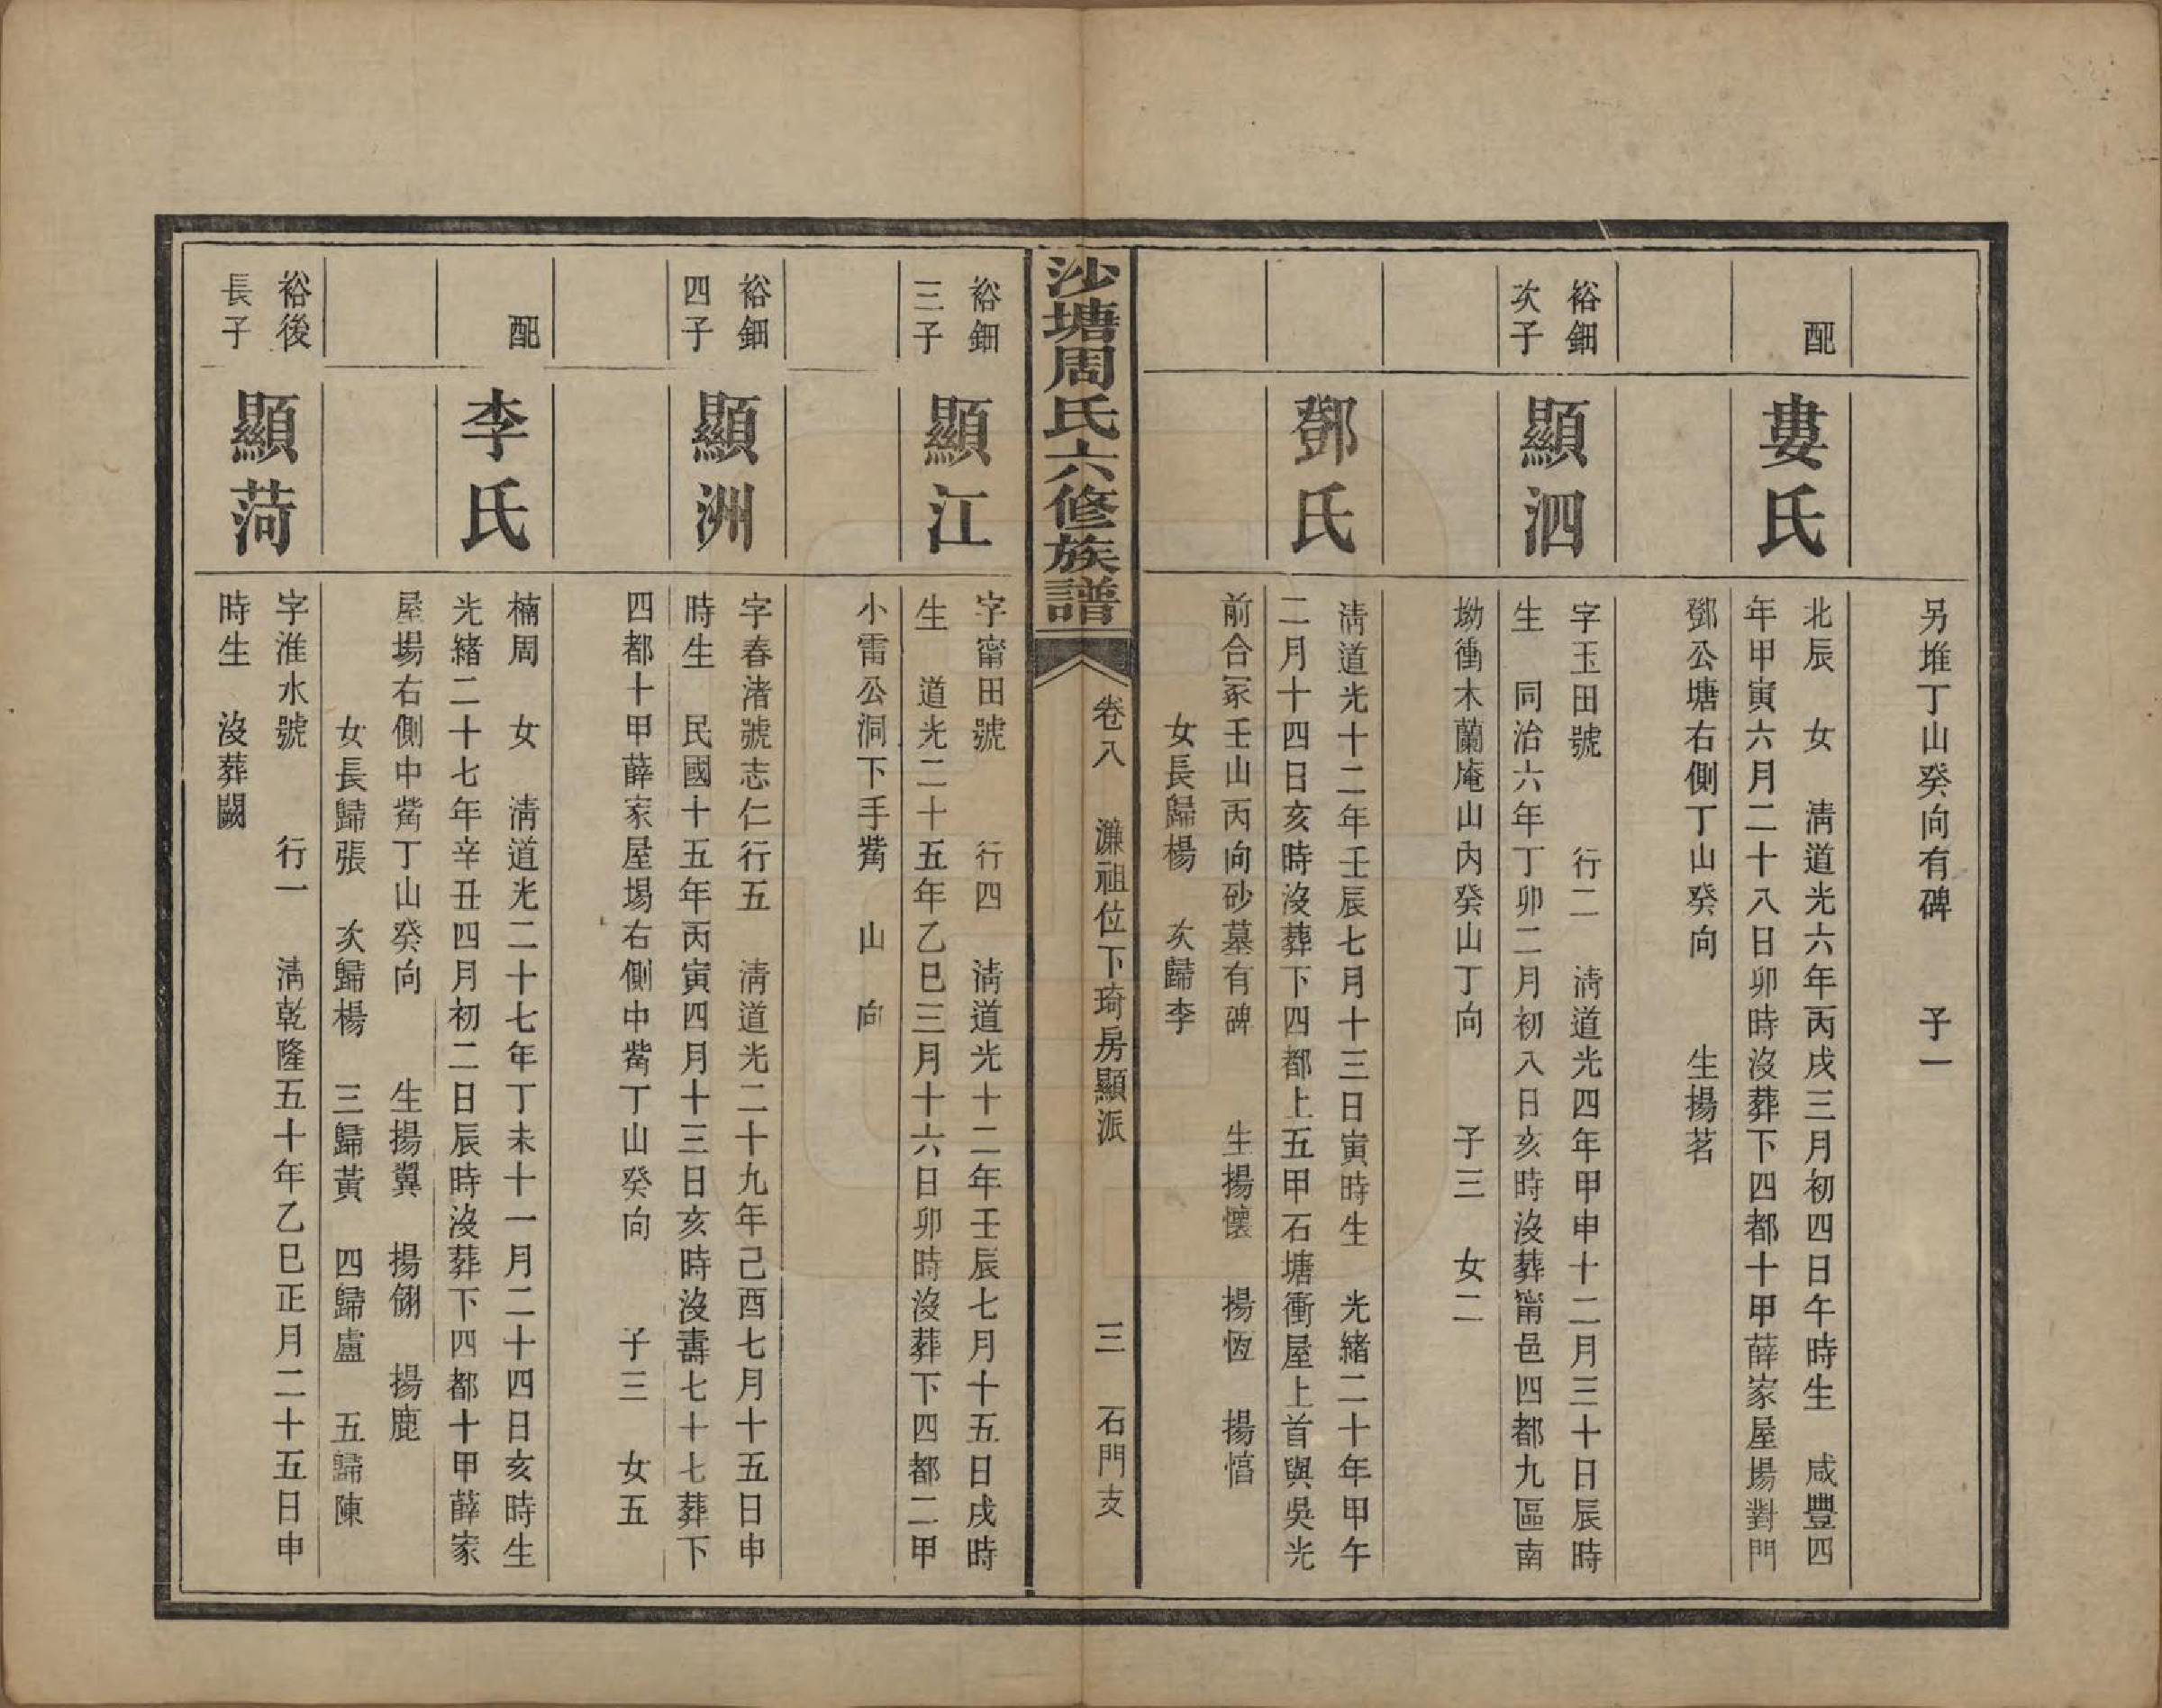 另堆丁山癸向有碑　子一
配
婁氏
北辰　女　清道光六年丙戌三月初四日午時生　咸豐四
年甲寅六月二十八日卯時沒葬下四都十甲薛家屋場對門
鄧公塘右側丁山癸向　生揚茗
裕鈿
次子
顯泗
字玉田號　行二　清道光四年甲申十二月三十日辰時
生　同治六年丁卯二月初八日亥時沒葬甯邑四都九區南
坳衝木蘭庵山內癸山丁向　子三　女二
鄧氏
清道光十二年壬辰七月十三日寅時生　光緒二十年甲午
二月十四日亥時沒葬下四都上五甲石塘衝屋上首與吳光
前合冢壬山丙向砂墓有碑　生揚懷　揚恆　揚愭
女長歸楊　次歸李
沙塘周氏六修族譜
卷八　濂祖位下琦房顯派　三　石門支
裕鈿
三子
顯江
字甯田號　行四　清道光十二年壬辰七月十五日戌時
生　道光二十五年乙巳三月十六日卯時沒葬下四都二甲
小雷公洞下手觜　山　向
裕鈿
四子
顯洲
字春渚號志仁行五　清道光二十九年己酉七月十五日申
時生　民國十五年丙寅四月十三日亥時沒壽七十七葬下
四都十甲薛家屋場右側中觜丁山癸向　子三　女五
配
李氏
楠周　女　清道光二十七年丁未十一月二十四日亥時生
光緒二十七年辛丑四月初二日辰時沒葬下四都十甲薛家
屋場右側中觜丁山癸向　生揚翼　揚翎　揚鹿
女長歸張　次歸楊　三歸黃　四歸盧　五歸陳
裕後
長子
顯菏
字淮水號　行一　清乾隆五十年乙巳正月二十五日申
時生　沒葬闕